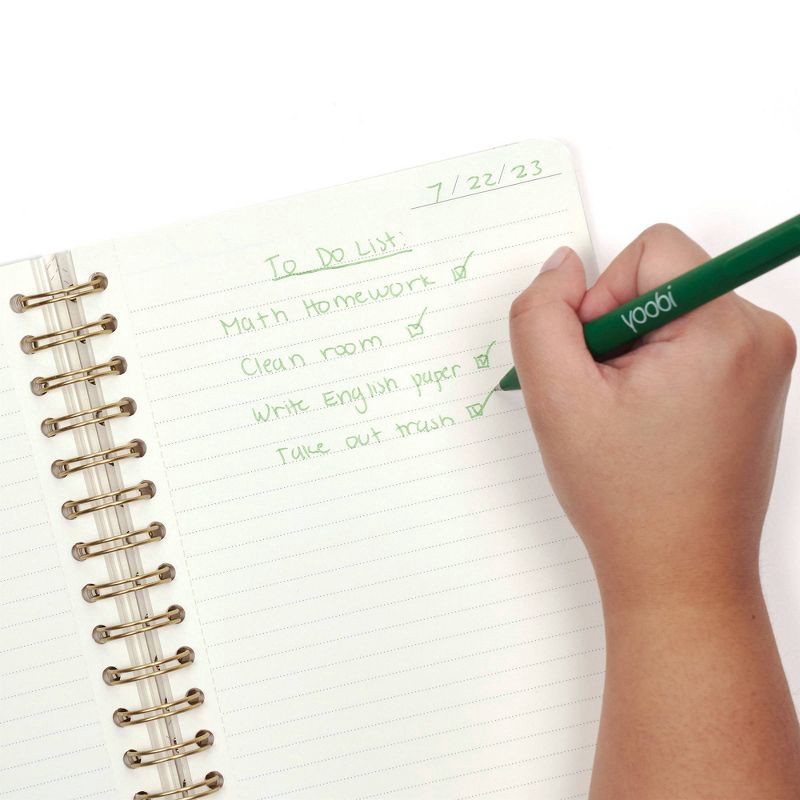 7/22/23
To Do List:
Math Homework ☑
Clean room ☑
Write English paper ☑
Take out trash ☑
yoobi